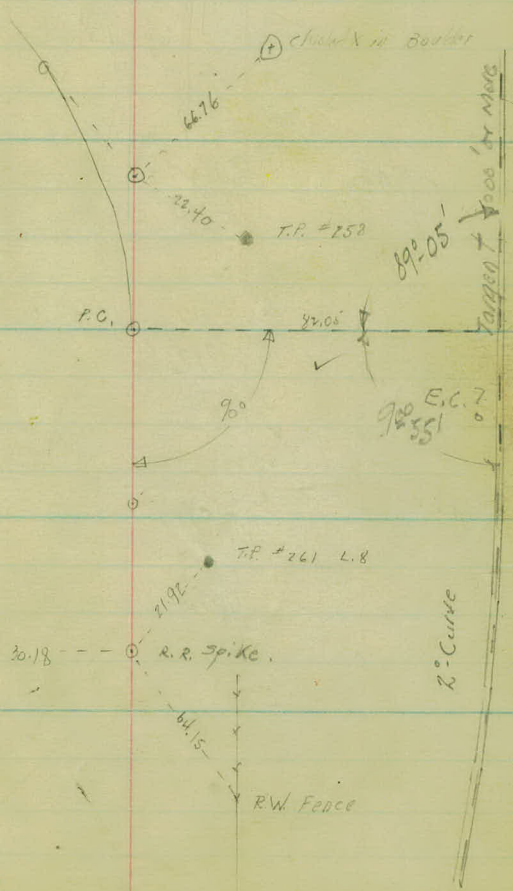 Chisel X in Boulder
66.76
22.40
T.P. #258
89°-05'
Tangent 1000' or more
P.C.
82.05
90°
E.C.?
90° 55'
T.P. #261 L.8
21.92
30.18
R.R. Spike.
2° Curve
64.15
R.W. Fence